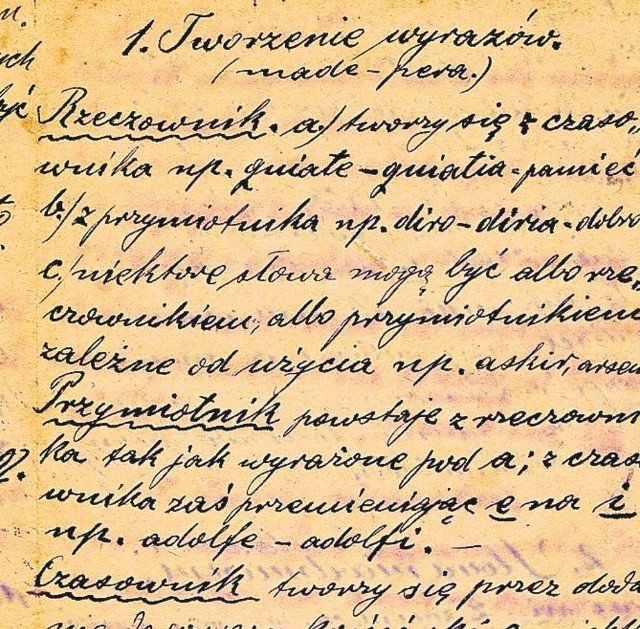 1. Tworzenie wyrazów.
(made-pera.)
Rzeczownik. a.) tworzy się z czaso„
wnika np. gniate-gniatia-pamięć
b.) z przymiotnika np. diro-diria-dobro
c.) niektore słowa mogą być albo rze„
czownikiem, albo przymiotnikiem
zależne od użycia np. askir, arsen
Przymiotnik powstaje z rzeczowni
ka tak jak wyrażone pod a; z czas
wnika zaś przemieniając e na i
np. adolfe - adolfi. —
Czasownik tworzy się przez doda